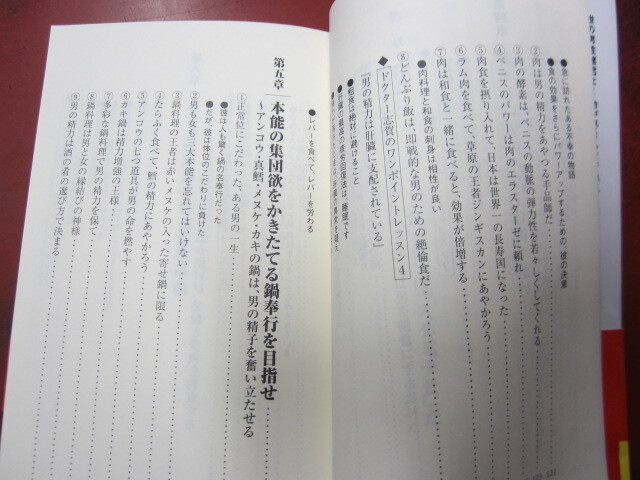 ●急に訪れたある不幸の物語
●食の効果をさらにパワーアップするための、彼の決意
②肉は男の精力をあやつる手品師だ
③肉の酵素は、ペニスの動脈の弾力性を若々しくしてくれる
④ペニスのパワーは肉のエラスターゼに頼れ
⑤肉食を採り入れて、日本は世界一の長寿国になった
⑥ラム肉を食べて、草原の王者ジンギスカンにあやかろう
⑦肉は和食と一緒に食べると、効果が倍増する
●肉料理と和食の刺身は相性が良い
⑧どんぶり飯は、即戦的な男のための絶倫食だ
◆ドクター志賀のワンポイントレッスン4
『男の精力は肝臓に支配されている』
●粗食は絶対に避けること
●肝臓の最高の疲労回復法は、睡眠です
●レバーを食べて、レバーを労わる
第五章 本能の集団欲をかきたてる鍋奉行を目指せ
～アンコウ・真鱈・メヌケ・カキの鍋は、男の精子を奮い立たせる
①正常位にこだわった、ある男の一生
●彼は人も驚く鍋の名奉行だった
●だが、彼は体位のこだわりに負けた
②男も女も三大本能を忘れてはいけない
③鍋料理の王者は赤いメヌケの入った寄せ鍋に限る
④たらふく食べて、鱈の精力にあやかろう
⑤アンコウの七つ道具が男の命を燃やす
⑥カキ鍋は精力増強の王様
⑦多彩な鍋料理で男の精力を保て
⑧鍋料理は男と女の縁結びの神様
⑨男の精力は酒の肴の選び方で決まる